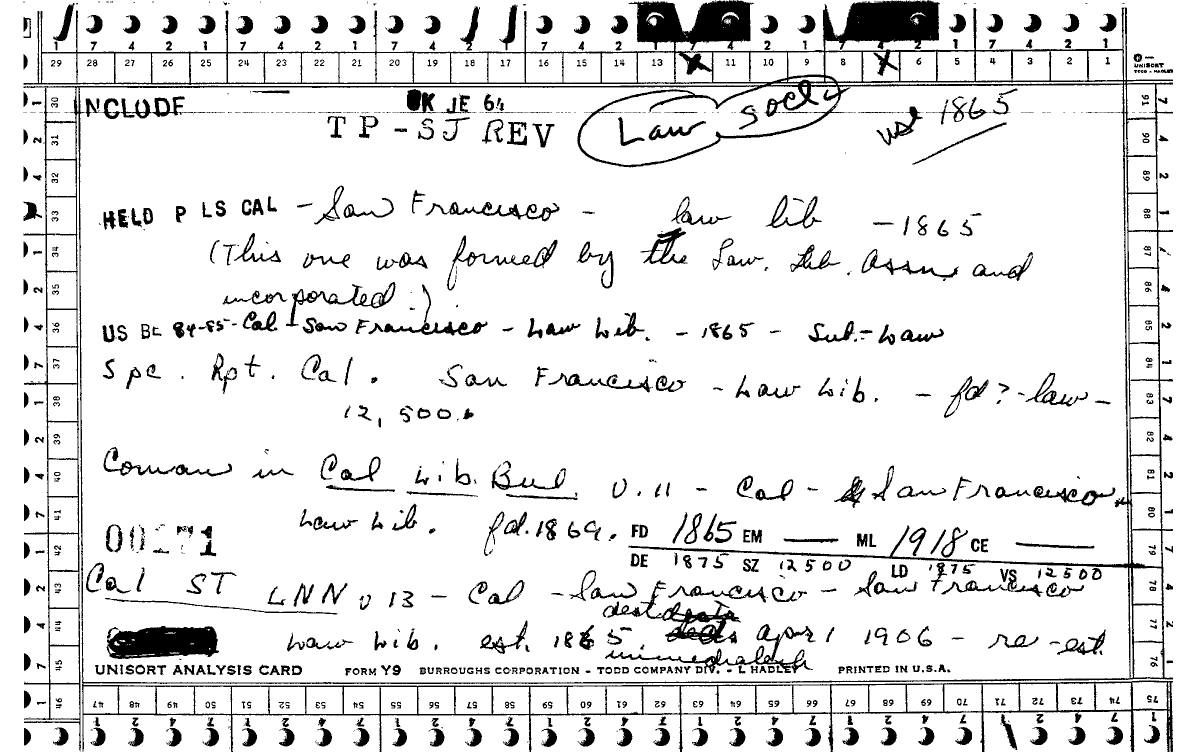 7 4 2 1 7 4 2 1 7 4 2 1 7 4 2 1 7 4 2 1 7 4 2 1 7 4 2 1
29 28 27 26 25 24 23 22 21 20 19 18 17 16 15 14 13 11 10 9 8 6 5 4 3 2 1
UNISORT
TODD - HADLEY
INCLUDE OK JE 64
TP-SJ REV Law, socl. use 1865
HELD P LS CAL - San Francisco - law lib - 1865
(This one was formed by the Law. Lib. Assn. and
incorporated.)
US BE 84-85 - Cal - San Francisco - Law Lib. - 1865 - Sub. - Law
Spc. Rpt. Cal. San Francisco - Law Lib. - fd? - law -
12,500.
Coman in Cal Lib. Bul. v.11 - Cal - San Francisco
Law Lib. fd. 1869. FD 1865 EM — ML 1918 CE —
00271
DE 1875 SZ 12500 LD 1875 VS 12500
Cal ST LNN v 13 - Cal - San Francisco - San Francisco
Law Lib. est. 1865 dest April 1906 - re-est.
immediately
UNISORT ANALYSIS CARD FORM Y9 BURROUGHS CORPORATION - TODD COMPANY DIV. - L HADLEY PRINTED IN U.S.A.
30 31 32 33 34 35 36 37 38 39 40 41 42 43 44 45
91 90 89 88 87 86 85 84 83 82 81 80 79 78 77 76
46 47 48 49 50 51 52 53 54 55 56 57 58 59 60 61 62 63 64 65 66 67 68 69 70 71 72 73 74 75